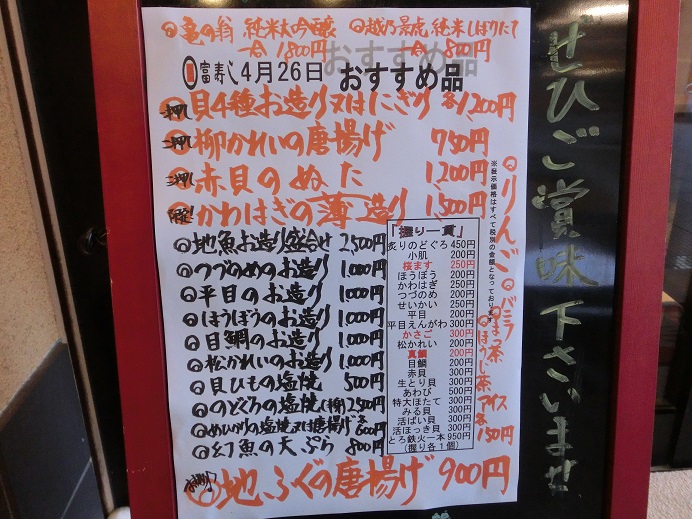 亀の翁 純米大吟醸 一合 1,800円
越乃景虎 純米 しぼりたて 一合 800円
富寿し 4月26日 おすすめ品
一押し 貝4種お造り又はにぎり 各1,200円
二押し 柳かれいの唐揚げ 750円
三押し 赤貝のぬた 1,200円
かわはぎの薄造り 1,500円
地魚お造り盛合せ 2,500円
つづのめのお造り 1,000円
平目のお造り 1,000円
ほうぼうのお造り 1,000円
目鯛のお造り 1,000円
松かれいのお造り 1,000円
貝ひもの塩焼 500円
のどぐろの塩焼(樽) 2,500円
めひかりの塩焼又は唐揚げ 各600円
幻魚の天ぷら 800円
地ふぐの唐揚げ 900円
『握り一貫』
炙りのどぐろ 450円
小肌 200円
桜ます 250円
ほうぼう 200円
かわはぎ 250円
つづのめ 200円
せいかい 250円
平目 200円
平目えんがわ 300円
かさご 300円
松かれい 200円
真鯛 200円
目鯛 200円
赤貝 300円
生とり貝 300円
あわび 500円
特大ほたて 300円
みる貝 300円
活ばい貝 300円
活ほっき貝 300円
とろ鉄火一本 950円
(握り各1個)
※表示価格はすべて税別の金額となっております
りんご
バニラ
ほうじ茶
アイス
各150円
ぜひご賞味下さいませ